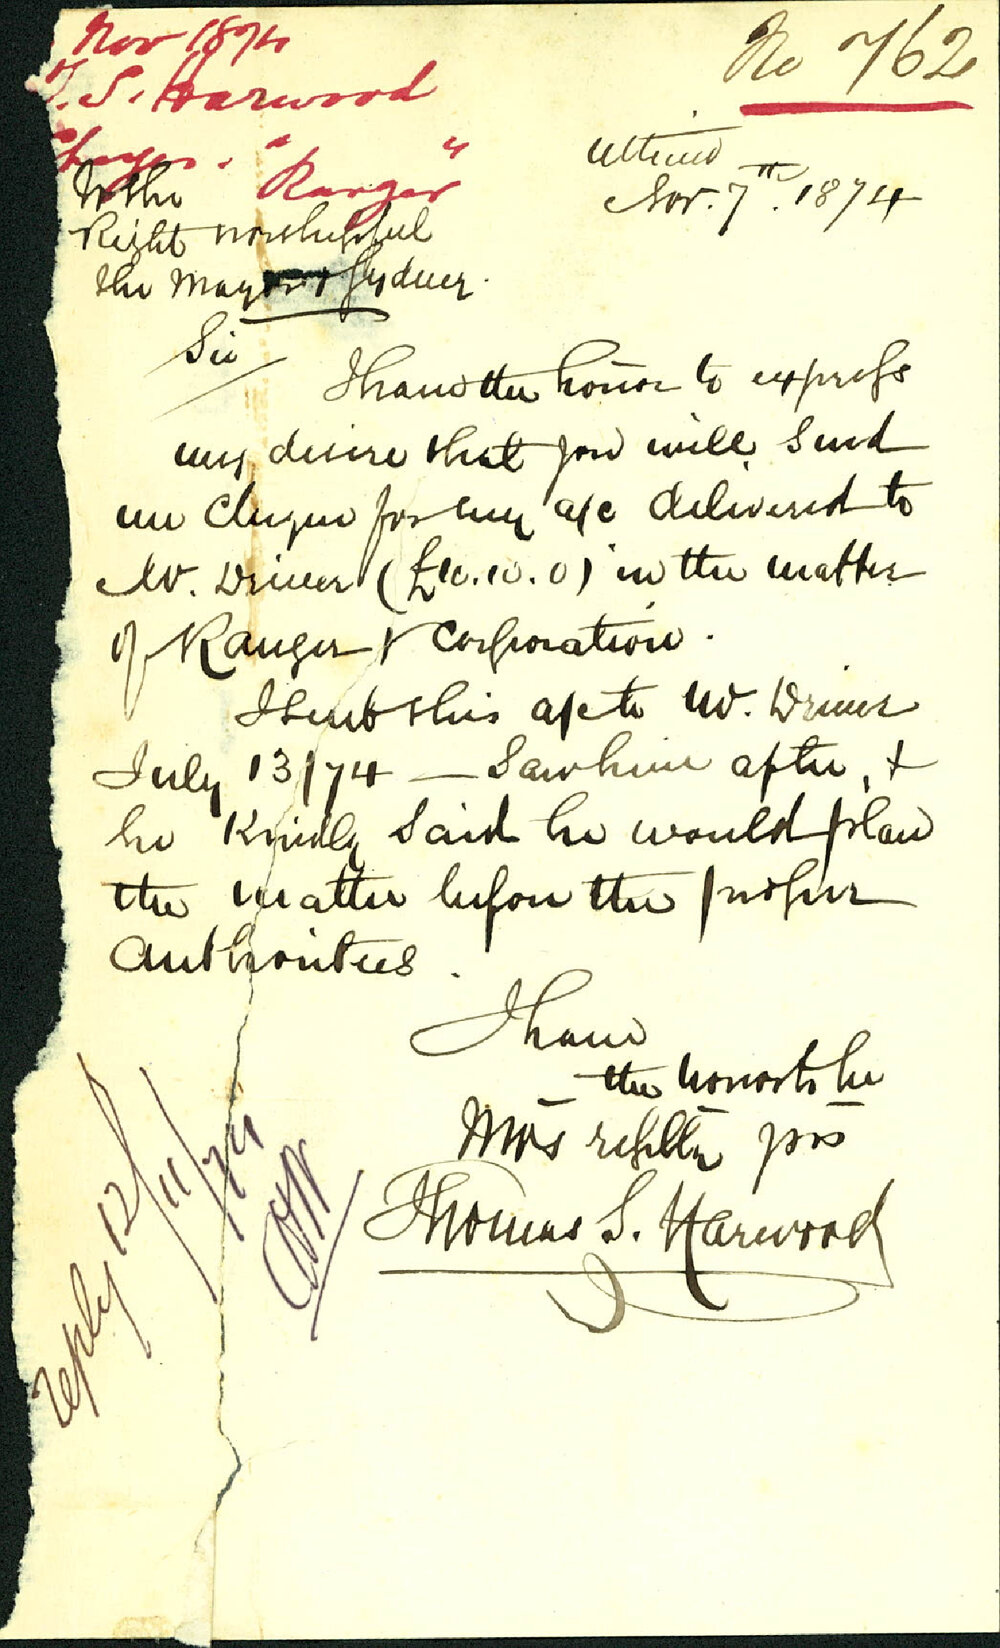 Nov 1874
T. S. Harwood
"Ranger"
No 762
Nov. 7th. 1874
To the
Right Worshipful
the Mayor of Sydney.
Sir
I have the honor to express
my desire that you will send
me cheque for my a/c delivered to
Mr. Driver (£10.10.0) in the matter
of Ranger & Corporation.
I sent this a/c to Mr. Driver
July 13/74 — Saw him after, &
he kindly said he would place
the matter before the proper
Authorities.
I have
the honor to be
Most respectfully yours
Thomas S. Harwood
reply 12/11/74